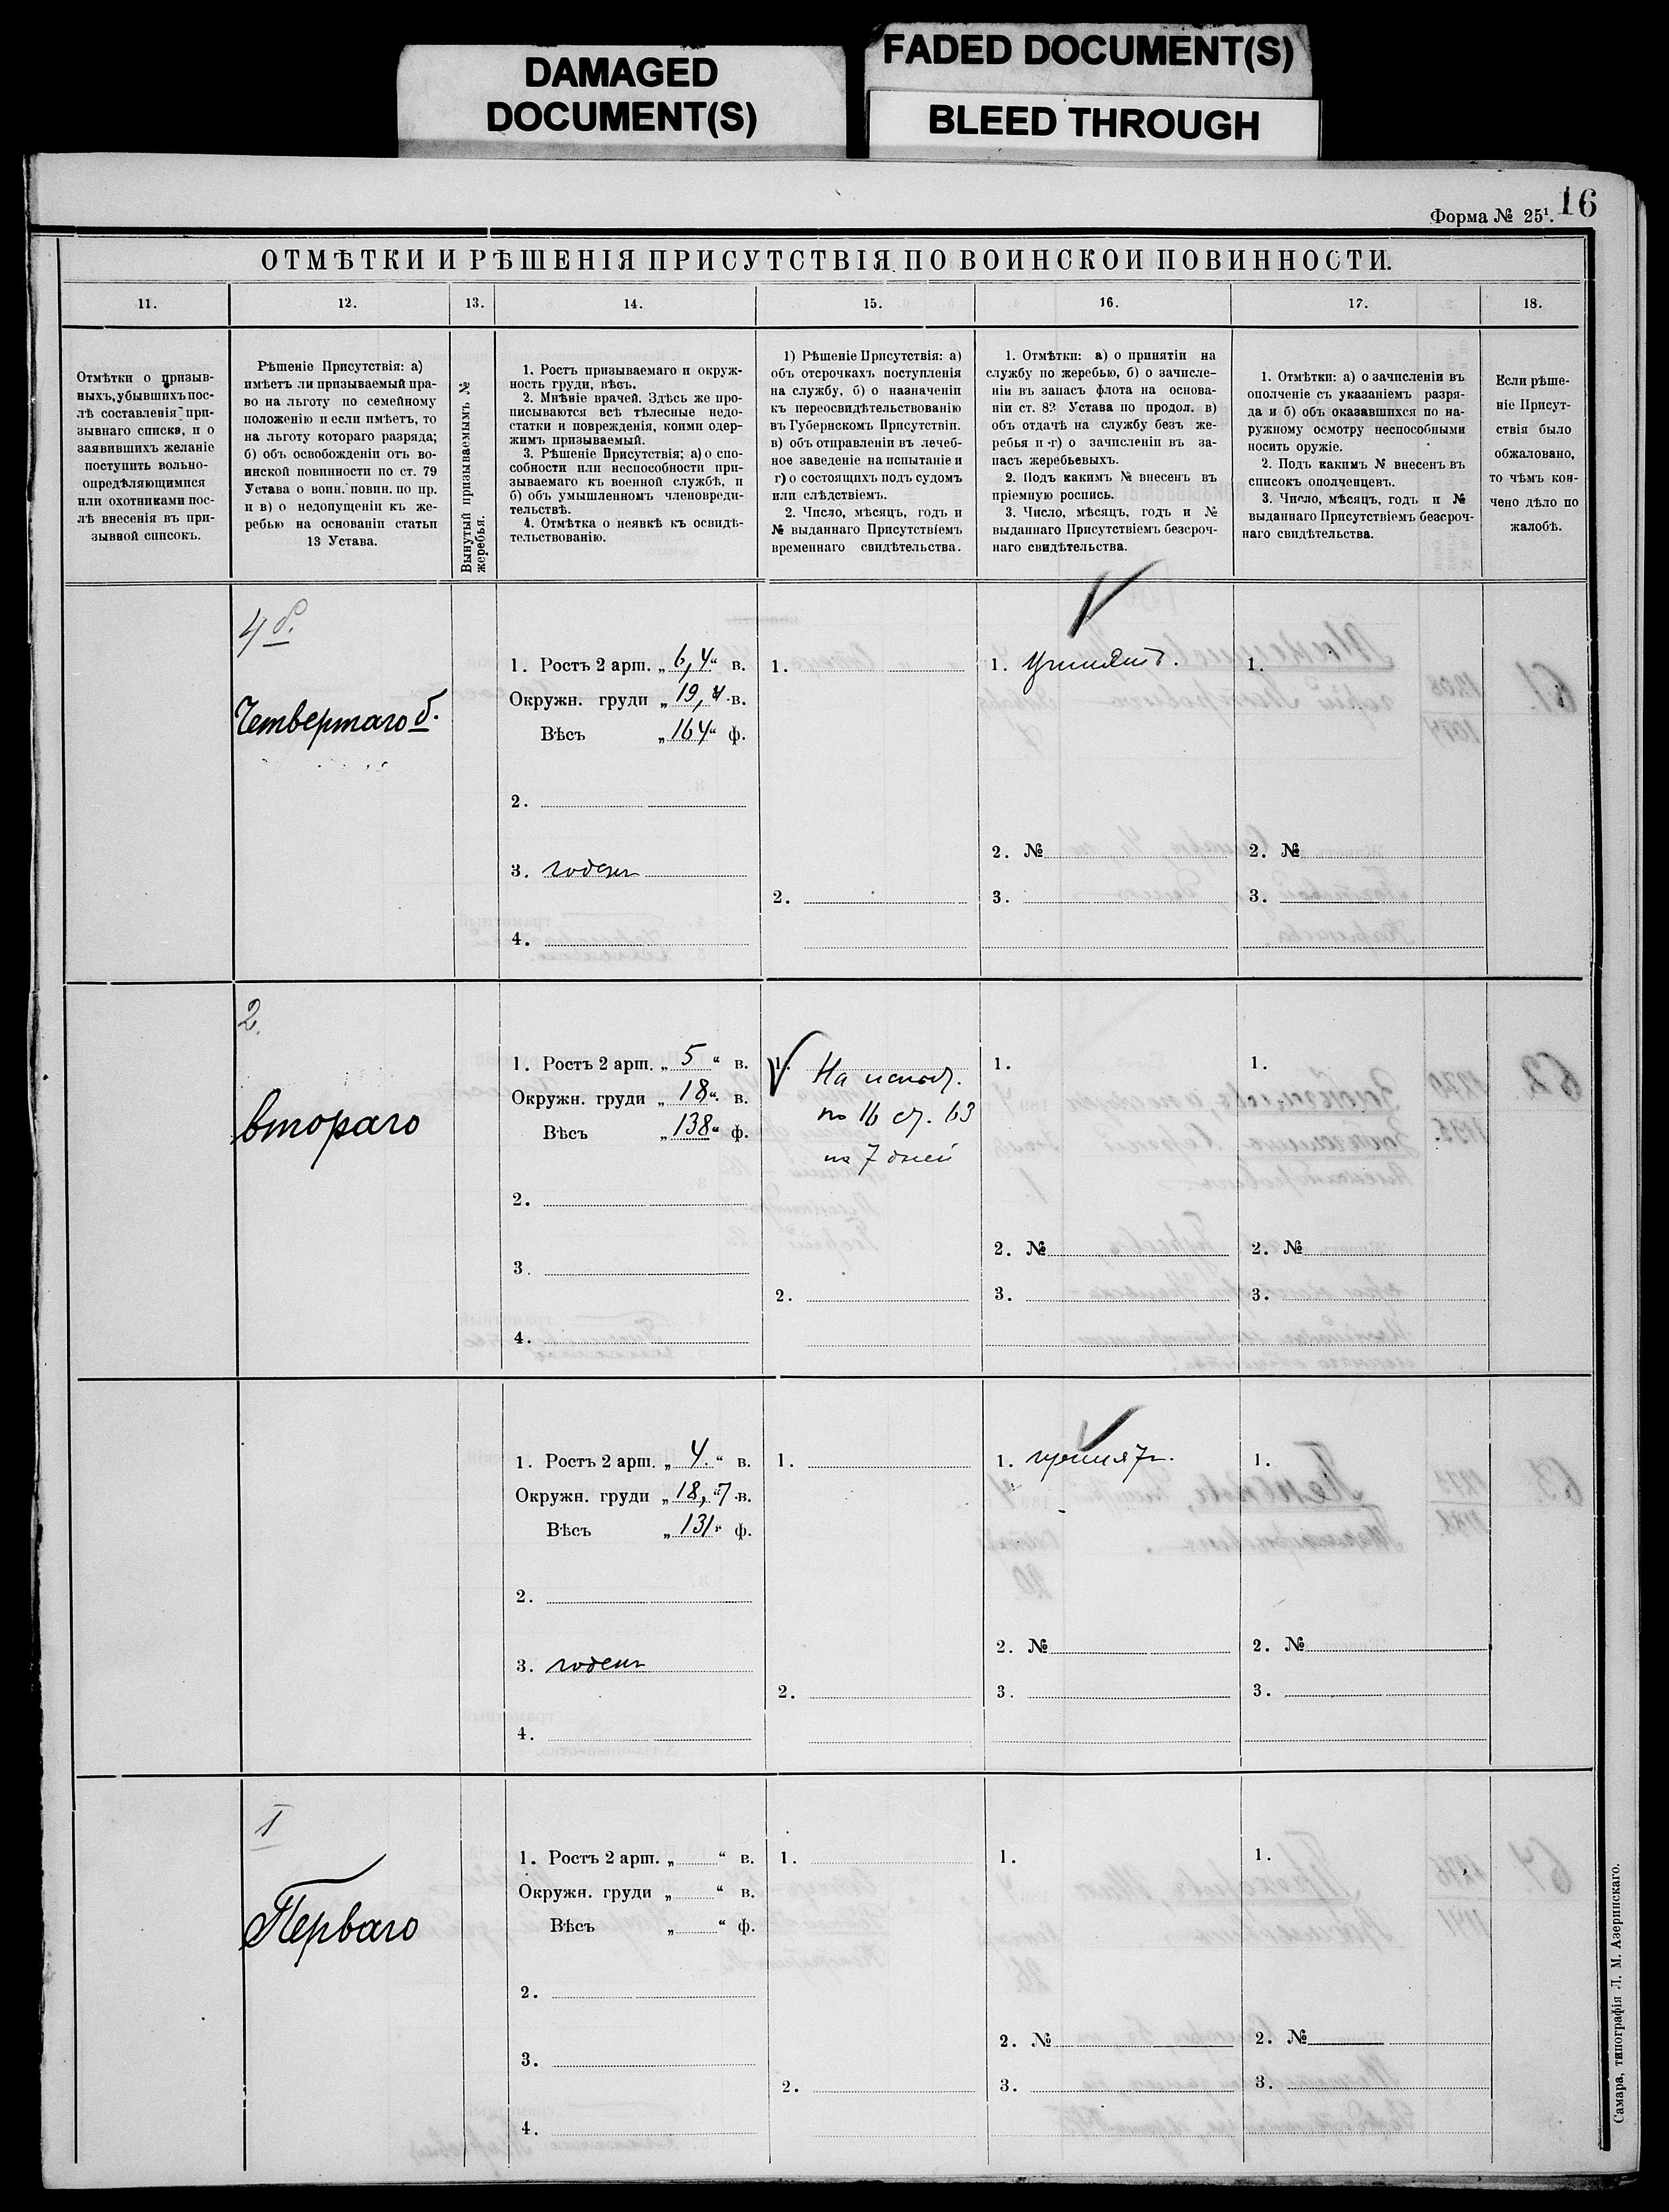 DAMAGED
DOCUMENT(S)
FADED DOCUMENT(S)
BLEED THROUGH
16
Форма № 25¹.
ОТМѢТКИ И РѢШЕНІЯ ПРИСУТСТВІЯ ПО ВОИНСКОИ ПОВИННОСТИ.
11.
12.
13.
14.
15.
16.
17.
18.
Отмѣтки о призыв-
ныхъ, убывшихъ пос-
лѣ составленія при-
зывнаго списка, и о
заявившихъ желаніе
поступить вольно-
опредѣляющимися
или охотниками пос-
лѣ внесенія въ при-
зывной списокъ.
Рѣшеніе Присутствія: а)
имѣетъ ли призываемый пра-
во на льготу по семейному
положенію и если имѣетъ, то
на льготу котораго разряда;
б) объ освобожденіи отъ во-
инской повинности по ст. 79
Устава о воин. повин. по пр.
и в) о недопущеніи къ же-
ребью на основаніи статьи
13 Устава.
Вынутый призываемымъ №
жеребья.
1. Ростъ призываемаго и окруж-
ность груди, вѣсъ.
2. Мнѣніе врачей. Здѣсь же про-
писываются всѣ тѣлесные недо-
статки и поврежденія, коими одер-
жимъ призываемый.
3. Рѣшеніе Присутствія; а) о спо-
собности или неспособности при-
зываемаго къ военной службѣ, и
б) объ умышленномъ членовреди-
тельствѣ.
4. Отмѣтка о неявкѣ къ освидѣ-
тельствованію.
1) Рѣшеніе Присутствія: а)
объ отсрочкахъ поступленія
на службу, б) о назначеніи
къ переосвидѣтельствованію
въ Губернскомъ Присутствіи.
в) объ отправленіи въ лечеб-
ное заведеніе на испытаніе и
г) о состоящихъ подъ судомъ
или слѣдствіемъ.
2. Число, мѣсяцъ, годъ и
№ выданнаго Присутствіемъ
временнаго свидѣтельства.
1. Отмѣтки: а) о принятіи на
службу по жеребью, б) о зачисле-
ніи въ запасъ флота на основа-
ніи ст. 82 Устава по продол. в)
объ отдачѣ на службу безъ же-
ребья и г) о зачисленіи въ за-
пасъ жеребьевыхъ.
2. Подъ какимъ № внесенъ въ
пріемную роспись.
3. Число, мѣсяцъ, годъ и №
выданнаго Присутствіемъ безсроч-
наго свидѣтельства.
1. Отмѣтки: а) о зачисленіи въ
ополченіе съ указаніемъ разря-
да и б) объ оказавшихся по на-
ружному осмотру неспособными
носить оружіе.
2. Подъ какимъ № внесенъ въ
списокъ ополченцевъ.
3. Число, мѣсяцъ, годъ и №
выданнаго Присутствіемъ безсроч-
наго свидѣтельства.
Если рѣше-
ніе Присут-
ствія было
обжаловано,
то чѣмъ кон-
чено дѣло по
жалобѣ.
4 б.
Четвертаго б.
1. Ростъ 2 арш. „ 6,4 “ в.
Окружн. груди „ 19,4 в.
Вѣсъ „ 164 “ ф.
2.
3. годенъ
4.
1.
2.
1. принятъ.
2. №
3.
1.
2. №
3.
2.
втораго
1. Ростъ 2 арш. „ 5 “ в.
Окружн. груди „ 18 “ в.
Вѣсъ „ 138 “ ф.
2.
3.
4.
1. На испыт.
по 16 ст. 63
на 7 дней
2.
1.
2. №
3.
1.
2. №
3.
1. Ростъ 2 арш. „ 4. “ в.
Окружн. груди „ 18,7 в.
Вѣсъ „ 131 “ ф.
2.
3. годенъ
4.
1.
2.
1. принятъ.
2. №
3.
1.
2. №
3.
I
Перваго
1. Ростъ 2 арш. „ “ в.
Окружн. груди „ “ в.
Вѣсъ „ “ ф.
2.
3.
4.
1.
2.
1.
2. №
3.
1.
2. №
3.
Самара, типографія Л. М. Азеринскаго.